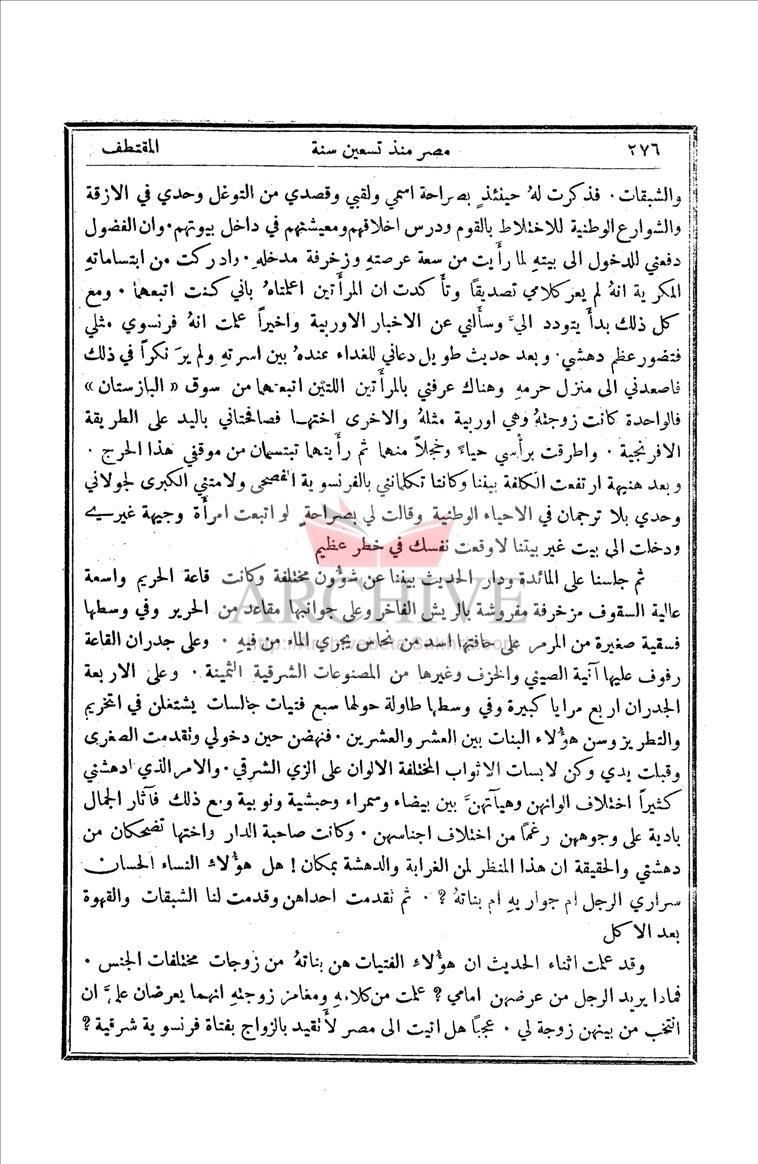 ٢٧٦ مصر منذ تسعين سنة المقتطف
والشبقات . فذكرت لهُ حينئذٍ بصراحة اسمي ولقبي وقصدي من التوغل وحدي في الازقة
والشوارع الوطنية للاختلاط بالقوم ودرس اخلاقهم ومعيشتهم في داخل بيوتهم . وان الفضول
دفعني للدخول الى بيتهِ لما رأيت من سعة عرصتهِ وزخرفة مدخلهِ . وادركت من ابتساماتهِ
المكرية انهُ لم يعر كلامي تصديقًا وتأكدت ان المرأتين اعلمتاهُ باني كنت اتبعهما . ومع
كل ذلك بدأ يتودد اليَّ وسألني عن الاخبار الاوربية واخيراً علمت انهُ فرنسوي مثلي
فتصور عظم دهشي . وبعد حديث طويل دعاني للغداء عندهُ بين اسرتهِ ولم يرَ نكراً في ذلك
فاصعدني الى منزل حرمهِ وهناك عرفني بالمرأتين اللتين اتبعتهما من سوق « البازستان »
فالواحدة كانت زوجتهُ وهي اوربية مثلهُ والاخرى اختها فصافحتاني باليد على الطريقة
الافرنجية . واطرقت برأسي حياءً وخجلاً منهما ثم رأيتهما تبتسمان من موقفي هذا الحرج .
وبعد هنيهة ارتفعت الكلفة بيننا وكانتا تكلمانني بالفرنسوية الفصحى ولامتني الكبرى لجولاني
وحدي بلا ترجمان في الاحياء الوطنية وقالت لي بصراحةٍ لو اتبعت امرأة وجيهة غيري
ودخلت الى بيت غير بيتنا لاوقعت نفسك في خطر عظيم
ثم جلسنا على المائدة ودار الحديث بيننا عن شؤُون مختلفة وكانت قاعة الحريم واسعة
عالية السقوف مزخرفة مفروشة بالريش الفاخر وعلى جوانبها مقاعد من الحرير وفي وسطها
فسقية صغيرة من المرمر على حافتها اسد من نحاس يجري الماء من فيهِ . وعلى جدران القاعة
رفوف عليها آنية الصيني والخزف وغيرها من المصنوعات الشرقية الثمينة . وعلى الاربعة
الجدران اربع مرايا كبيرة وفي وسطها طاولة حولها سبع فتيات جالسات يشتغلن في التخريم
والتطريز وسن هؤُلاء البنات بين العشر والعشرين . فنهضن حين دخولي وتقدمت الصغرى
وقبلت يدي وكن لابسات الاثواب المختلفة الالوان على الزي الشرقي . والامر الذي ادهشني
كثيراً اختلاف الوانهن وهيآتهنَّ بين بيضاء وسمراء وحبشية ونوبية ومع ذلك فآثار الجمال
بادية على وجوههن رغمًا من اختلاف اجناسهن . وكانت صاحبة الدار واختها تضحكان من
دهشتي والحقيقة ان هذا المنظر لمن الغرابة والدهشة بمكان ! هل هؤُلاء النساء الحسان
سراري الرجل ام جواريهِ ام بناتهُ ؟ . ثم تقدمت احداهن وقدمت لنا الشبقات والقهوة
بعد الاكل
وقد علمت اثناء الحديث ان هؤُلاء الفتيات هن بناتهُ من زوجات مختلفات الجنس .
فماذا يريد الرجل من عرضهن امامي ؟ علمت من كلامهِ ومغامز زوجتهِ انهما يعرضان عليَّ ان
انتخب من بينهن زوجة لي . عجبًا هل اتيت الى مصر لأتقيد بالزواج بفتاة فرنسوية شرقية ؟
ARCHIVE